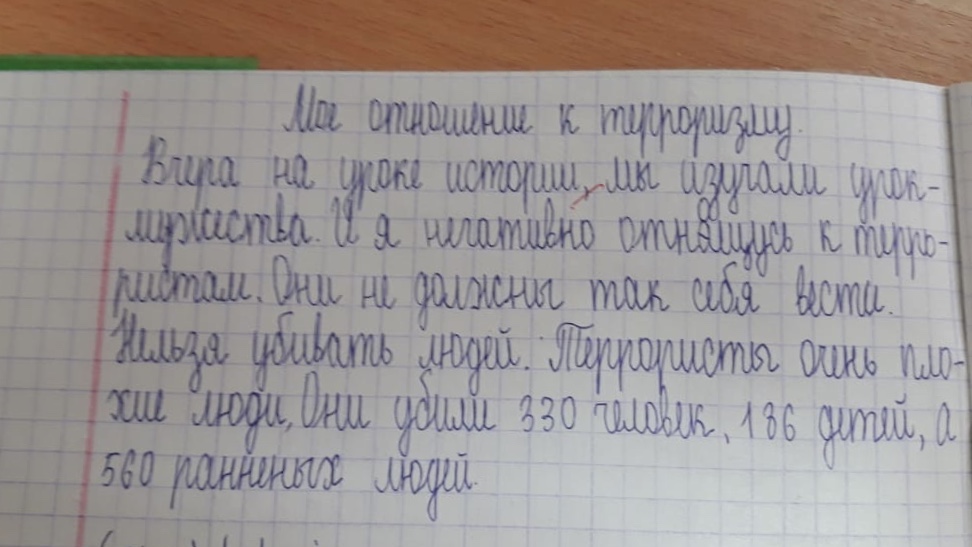 Мое отношение к терроризму.
Вчера на уроке истории, мы изучали урок-
мужества. И я негативно отнящусь к терро-
ристам. Они не должны так себя вести.
Нельзя убивать людей. Террористы очень пло-
хие люди, Они убили 330 человек, 186 детей, а
560 ранненых людей.